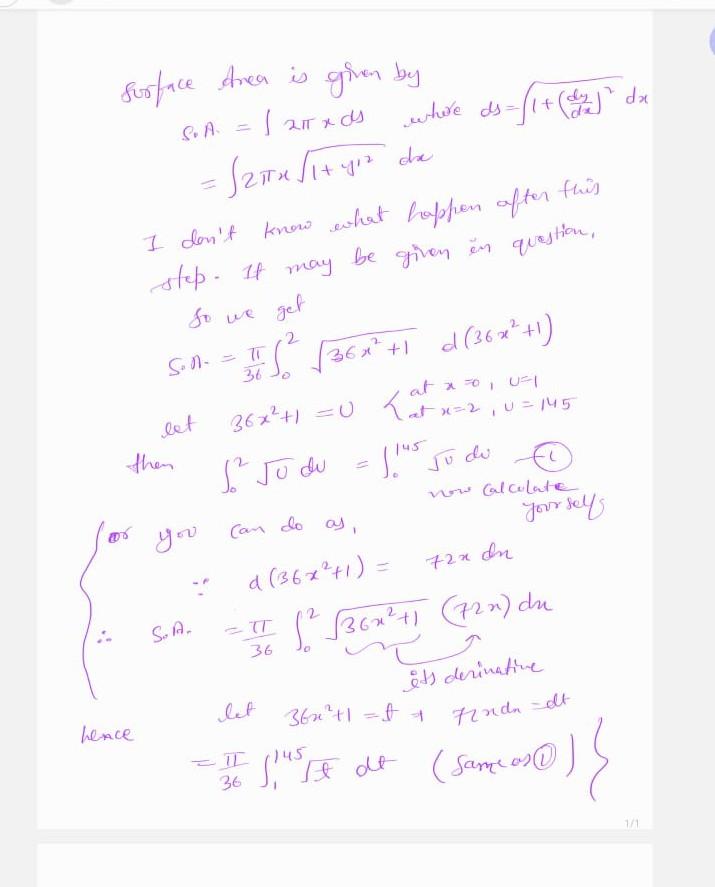 Surface Area is given by
S.A. = ∫ 2π x ds where ds = √(1+(dy/dx)²) dx
= ∫ 2πx √(1+y'²) dx
I don't know what happen after this
step. It may be given in question,
So we get
S.A. = π/36 ∫₀² √(36x²+1) d(36x²+1)
let 36x²+1 = U { at x=0, U=1
at x=2, U=145
then ∫₀² √U dU = ∫₀¹⁴⁵ √U dU —①
now calculate
yourself
or you can do as,
∵ d(36x²+1) = 72x dx
∴ S.A. = π/36 ∫₀² √(36x²+1) (72x) dx
its derivative
let 36x²+1 = t → 72x dx = dt
hence
= π/36 ∫₁¹⁴⁵ √t dt (same as ①) }
1/1